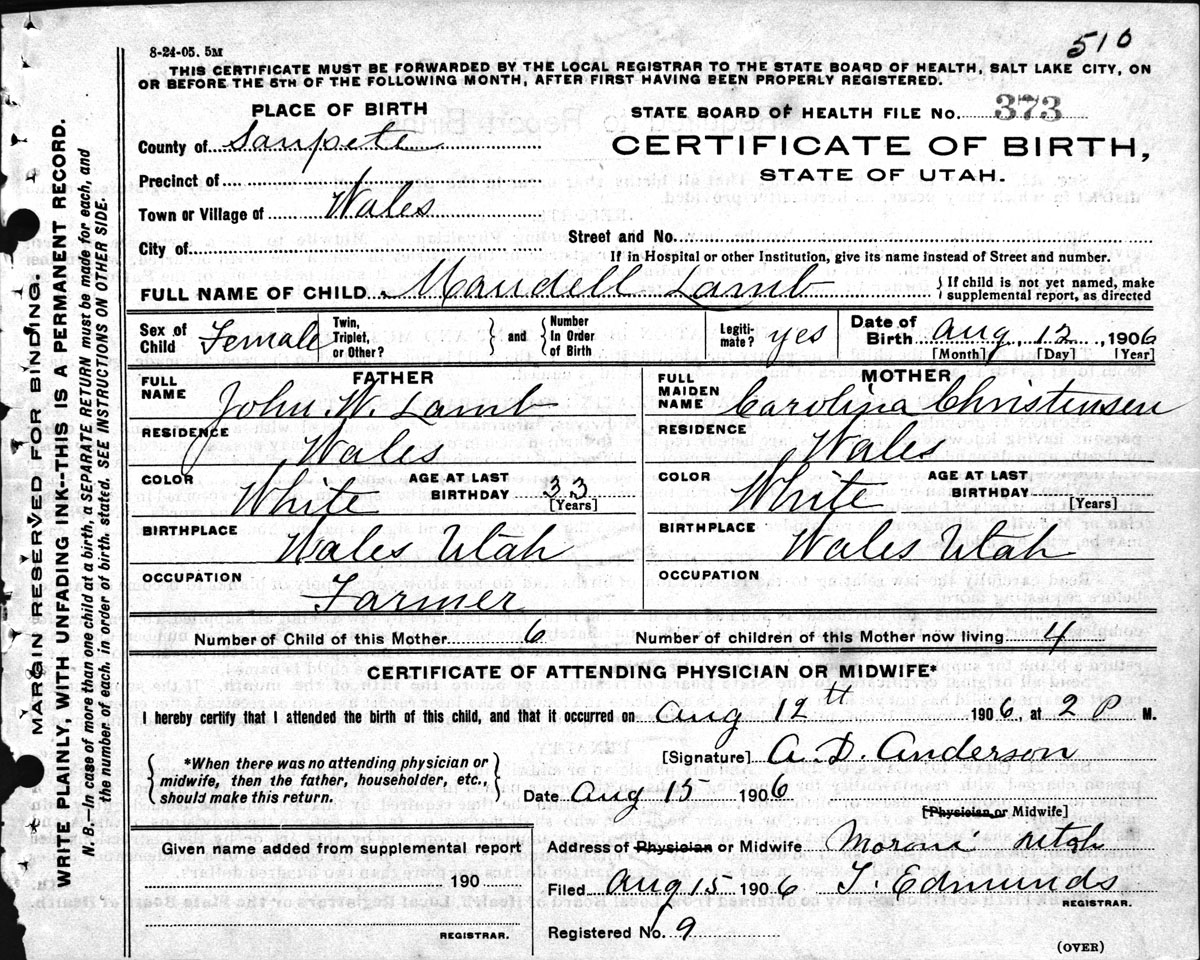 8-24-05. 5M
510
THIS CERTIFICATE MUST BE FORWARDED BY THE LOCAL REGISTRAR TO THE STATE BOARD OF HEALTH, SALT LAKE CITY, ON
OR BEFORE THE 5TH OF THE FOLLOWING MONTH, AFTER FIRST HAVING BEEN PROPERLY REGISTERED.
PLACE OF BIRTH
County of Sanpete
Precinct of
Town or Village of Wales
City of
STATE BOARD OF HEALTH FILE No. 373
CERTIFICATE OF BIRTH,
STATE OF UTAH.
Street and No.
If in Hospital or other Institution, give its name instead of Street and number.
FULL NAME OF CHILD Maudell Lamb
If child is not yet named, make
supplemental report, as directed
Sex of Child Female
Twin, Triplet, or Other?
and
Number In Order of Birth
Legitimate? yes
Date of Birth Aug, 12, 1906
[Month] [Day] [Year]
FATHER
FULL NAME John W. Lamb
RESIDENCE Wales
COLOR White
AGE AT LAST BIRTHDAY 33
[Years]
BIRTHPLACE Wales Utah
OCCUPATION Farmer
MOTHER
FULL MAIDEN NAME Carolina Christensen
RESIDENCE Wales
COLOR White
AGE AT LAST BIRTHDAY
[Years]
BIRTHPLACE Wales Utah
OCCUPATION
Number of Child of this Mother 6
Number of children of this Mother now living 4
CERTIFICATE OF ATTENDING PHYSICIAN OR MIDWIFE*
I hereby certify that I attended the birth of this child, and that it occurred on Aug 12th 1906, at 2 P M.
*When there was no attending physician or
midwife, then the father, householder, etc.,
should make this return.
[Signature] A. D. Anderson
Date Aug 15 1906
[Physician or Midwife]
Given name added from supplemental report
190
REGISTRAR.
Address of Physician or Midwife Moroni Utah
Filed Aug 15 1906 T. Edmunds
REGISTRAR.
Registered No. 9
(OVER)
MARGIN RESERVED FOR BINDING.
WRITE PLAINLY, WITH UNFADING INK--THIS IS A PERMANENT RECORD.
N. B.—In case of more than one child at a birth, a SEPARATE RETURN must be made for each, and
the number of each, in order of birth, stated. SEE INSTRUCTIONS ON OTHER SIDE.